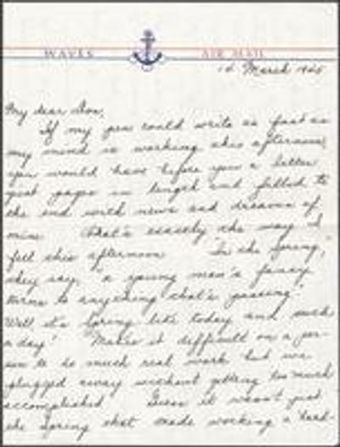 WAVES AIR MAIL
14 March 1945
My dear
If my pen could write as fast as
my mind is working this afternoon,
you would have before you a letter
pages in length and filled to
the end with news and dreams of
mine. That's exactly the way I
felt this afternoon. In the Spring,
they say, "a young man's fancy
turns to anything that's passing."
Well, it's Spring like today and such
a day! Makes it difficult on a per-
son to do much real work but we
plugged away without getting too much
accomplished. Guess it wasn't just
the Spring that made working a hard-